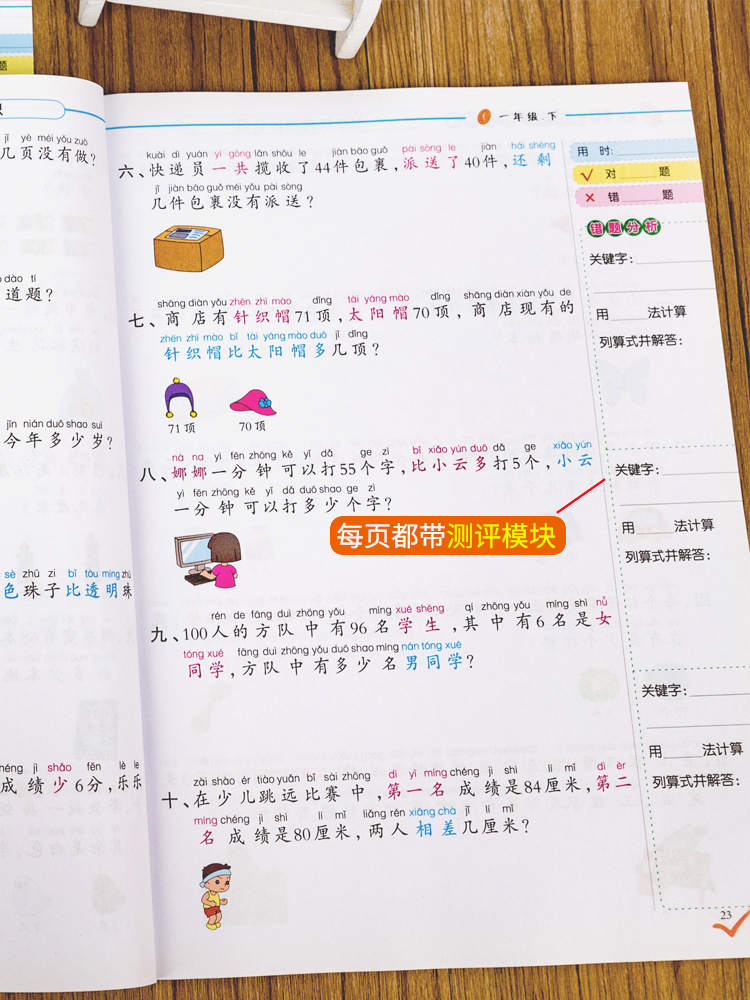 题
识
jǐ yè méi yǒu zuò
几页没有做?
dào tí
道题?
jīn nián duō shao suì
今年多少岁?
sè zhū zi bǐ tòu míng zhū
色珠子比透明珠
chéng jì shǎo fēn lè le
成绩少6分,乐乐
一年级.下
kuài dì yuán yí gòng lǎn shōu le jiàn bāo guǒ pài sòng le jiàn hái shèng
六、快递员一共揽收了44件包裹,派送了40件,还剩
jǐ jiàn bāo guǒ méi yǒu pài sòng
几件包裹没有派送?
shāng diàn yǒu zhēn zhī mào dǐng tài yáng mào dǐng shāng diàn xiàn yǒu de
七、商店有针织帽71顶,太阳帽70顶,商店现有的
zhēn zhī mào bǐ tài yáng mào duō jǐ dǐng
针织帽比太阳帽多几顶?
71顶 70顶
nà na yì fēn zhōng kě yǐ dǎ ge zì bǐ xiǎo yún duō dǎ ge xiǎo yún
八、娜娜一分钟可以打55个字,比小云多打5个,小云
yì fēn zhōng kě yǐ dǎ duō shao ge zì
一分钟可以打多少个字?
每页都带测评模块
rén de fāng duì zhōng yǒu míng xué shēng qí zhōng yǒu míng shì nǚ
九、100人的方队中有96名学生,其中有6名是女
tóng xué fāng duì zhōng yǒu duō shao míng nán tóng xué
同学,方队中有多少名男同学?
zài shào ér tiào yuǎn bǐ sài zhōng dì yī míng chéng jì shì lí mǐ dì èr
十、在少儿跳远比赛中,第一名成绩是84厘米,第二
míng chéng jì shì lí mǐ liǎng rén xiāng chà jǐ lí mǐ
名成绩是80厘米,两人相差几厘米?
用时:
✓ 对 题
× 错 题
错题分析
关键字:
用 法计算
列算式并解答:
关键字:
用 法计算
列算式并解答:
关键字:
用 法计算
列算式并解答:
23